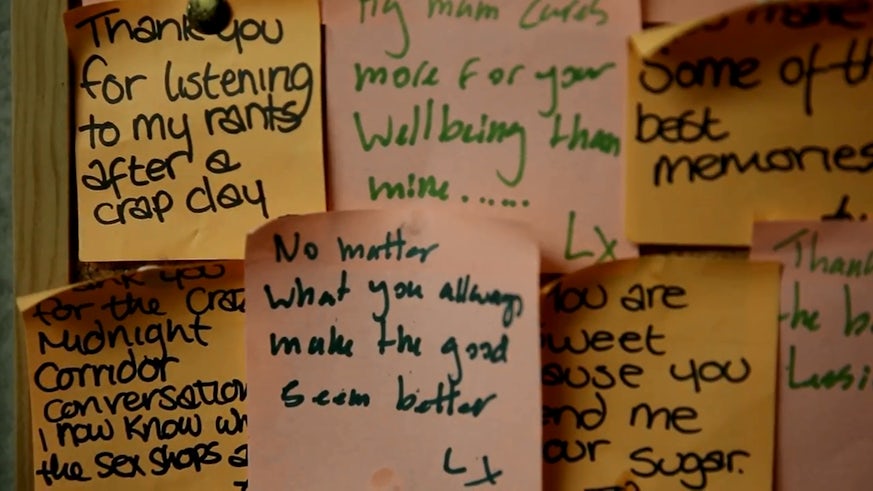 Thank you
for listening
to my rants
after a
crap day
My mum cares
more for your
Wellbeing than
mine......
Lx
Some of th
best
memories
Thank you
for the Craz
Midnight
Corridor
conversation
i now know wh
the sex shops a
No matter
what you allways
make the good
seem better
Lx
You are
sweet
cause you
end me
our sugar.
Than
the b